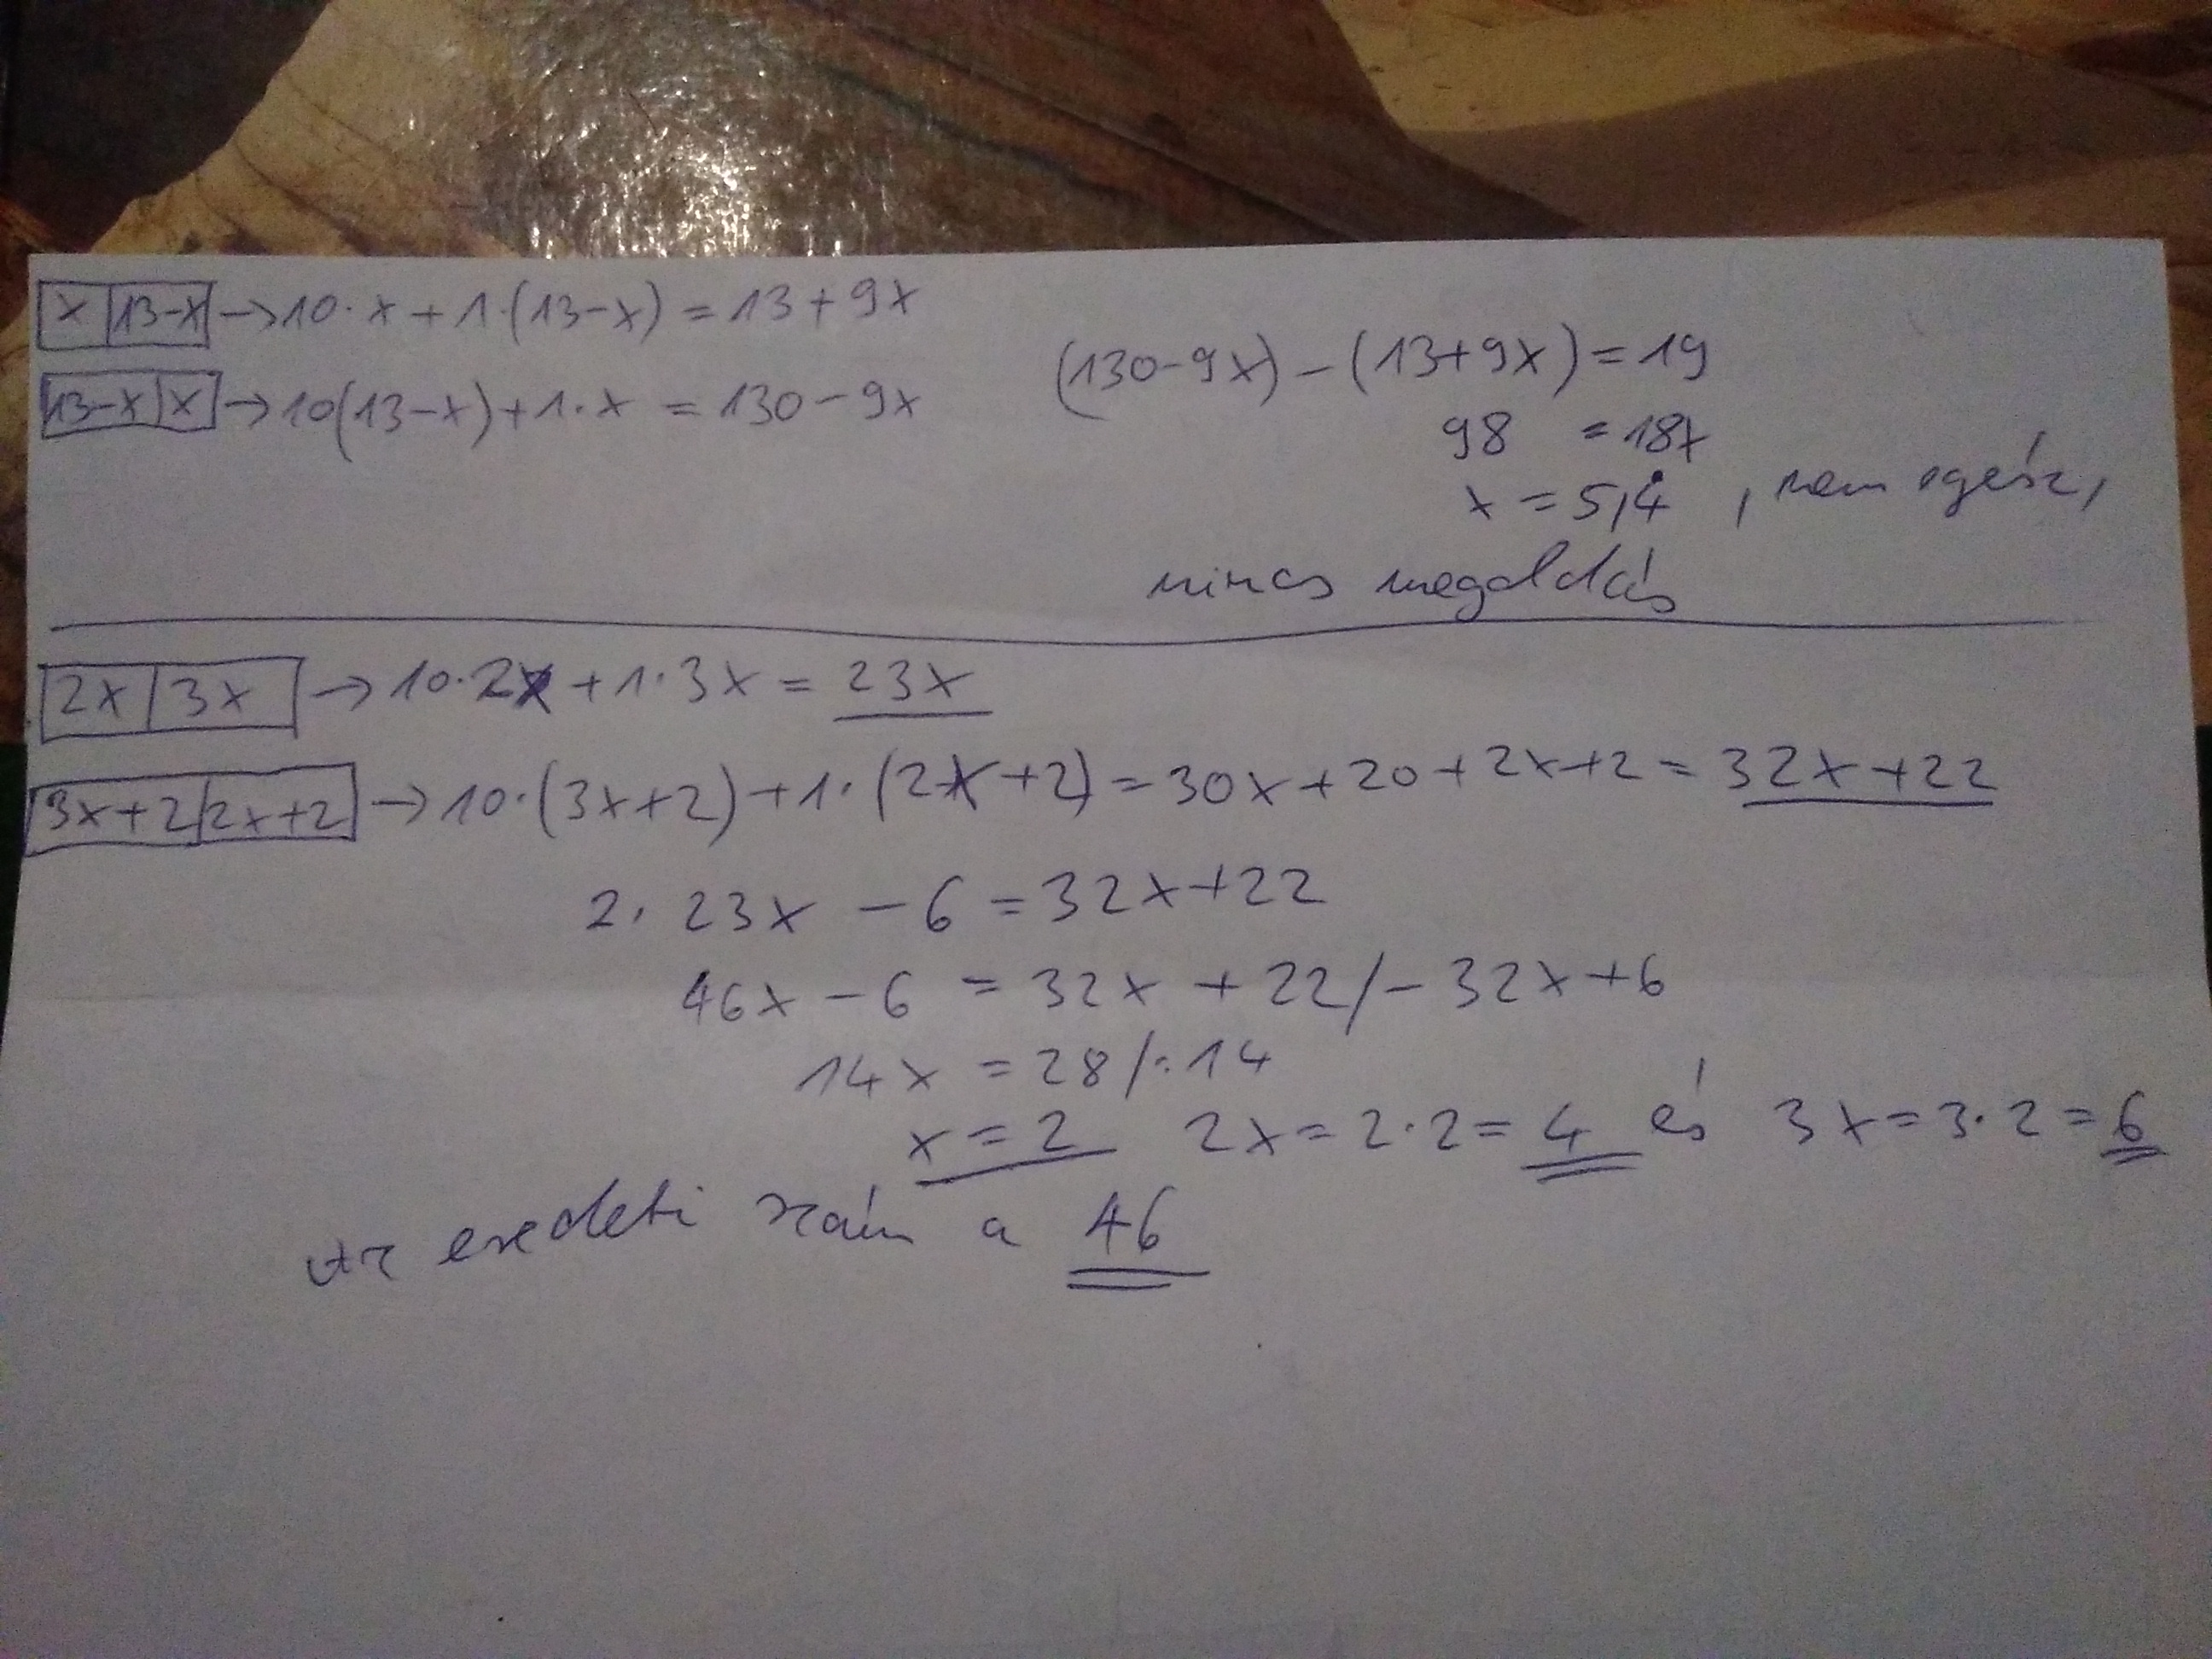 x | 13-x → 10·x + 1·(13-x) = 13 + 9x
13-x | x → 10(13-x) + 1·x = 130 - 9x
(130-9x) - (13+9x) = 19
98 = 18x
x = 5,4̇ , nem egész,
nincs megoldás
2x | 3x → 10·2x + 1·3x = 23x
3x+2 | 2x+2 → 10·(3x+2) + 1·(2x+2) = 30x + 20 + 2x + 2 = 32x + 22
2· 23x - 6 = 32x + 22
46x - 6 = 32x + 22 / - 32x + 6
14x = 28 /:14
x = 2 2x = 2·2 = 4 és 3x = 3·2 = 6
Az eredeti szám a 46